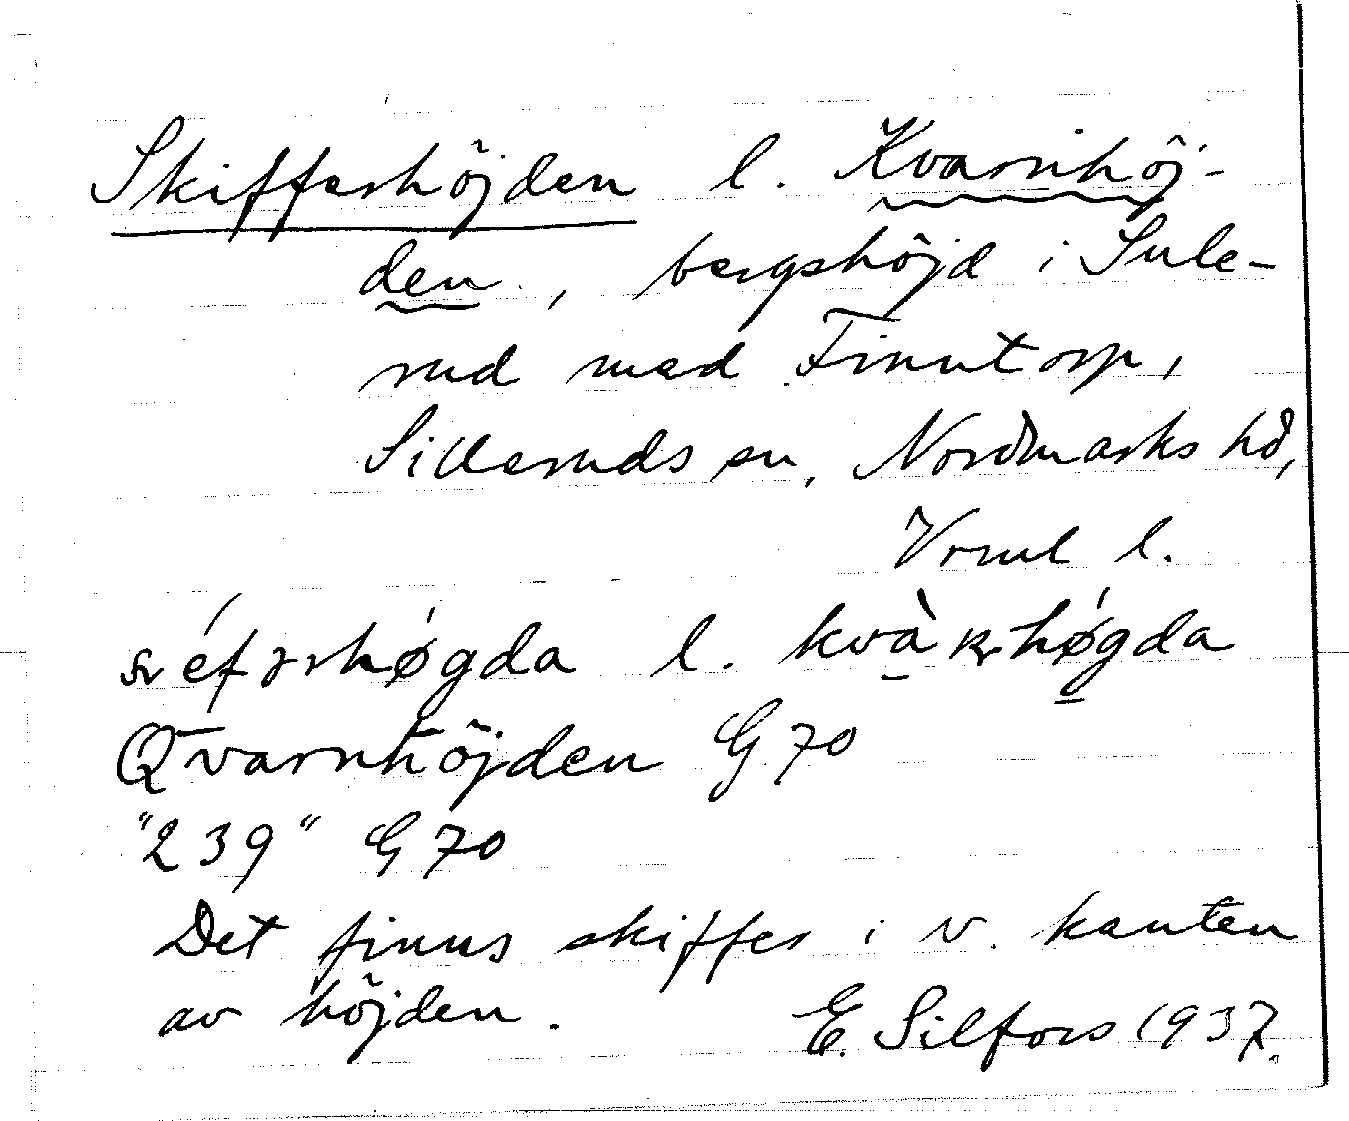 Skifferhöjden l. Kvarnhöj-
den, bergshöjd i Sule-
rud med Finntorp,
Silleruds sn, Nordmarks hd,
Vrml l.
høgda l. høgda
Qvarnhöjden G 70
"239" G 70
Det finns skiffer i v. kanten
av höjden. E. Silfors 1937.